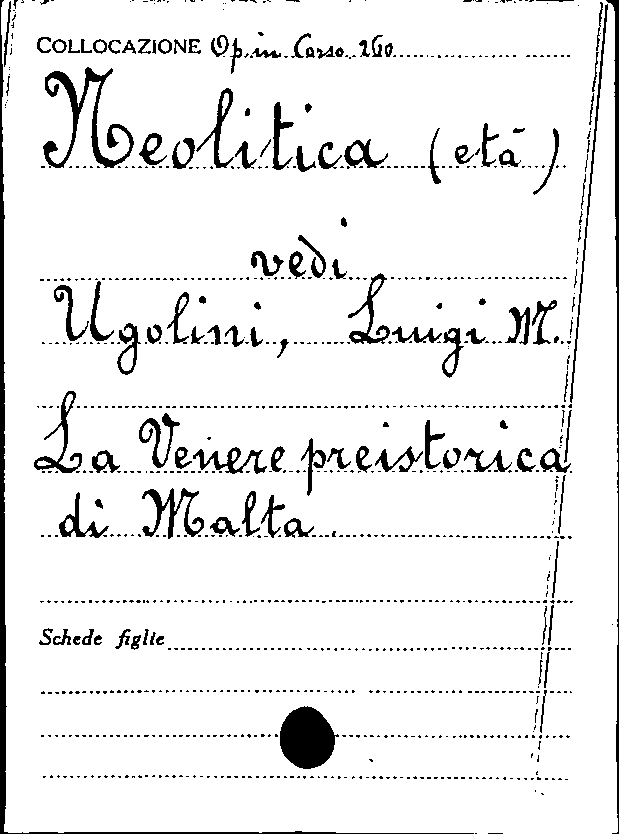 COLLOCAZIONE Op. in Corso 260
Neolitica (età)
vedi
Ugolini, Luigi M.
La Venere preistorica
di Malta.
Schede figlie